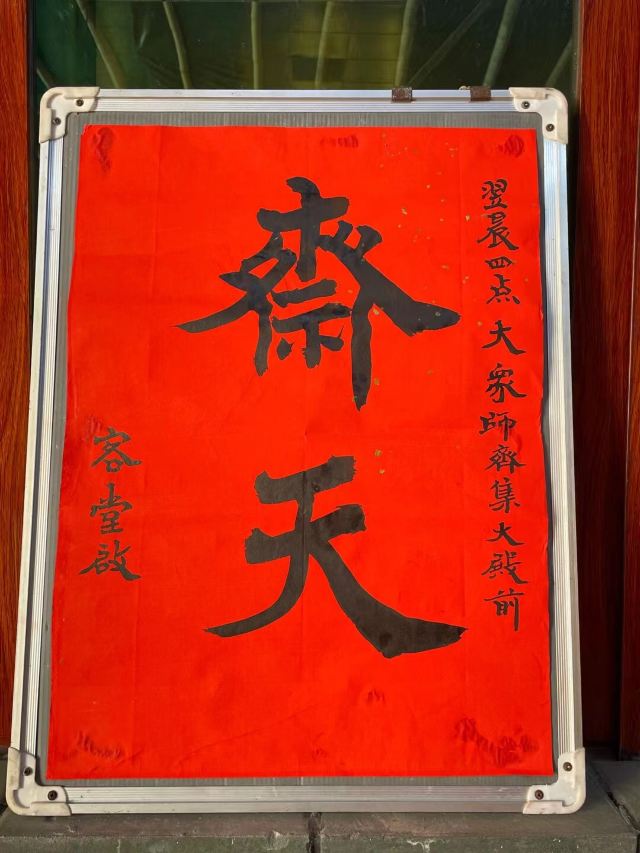 翌晨四点大衆師齊集大殿前
齋天
客堂啟